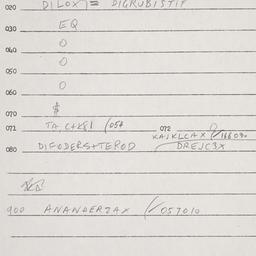 020 DILOX7= DIGRUBISTIF
030 EQ
040 0
050 0
060 0
$
070
071 TA C+K81 /054 072
KAJKLCAX /166030
080 DIFODERS+TEPOD DREJC3X
900 ANANDERTAX /057010